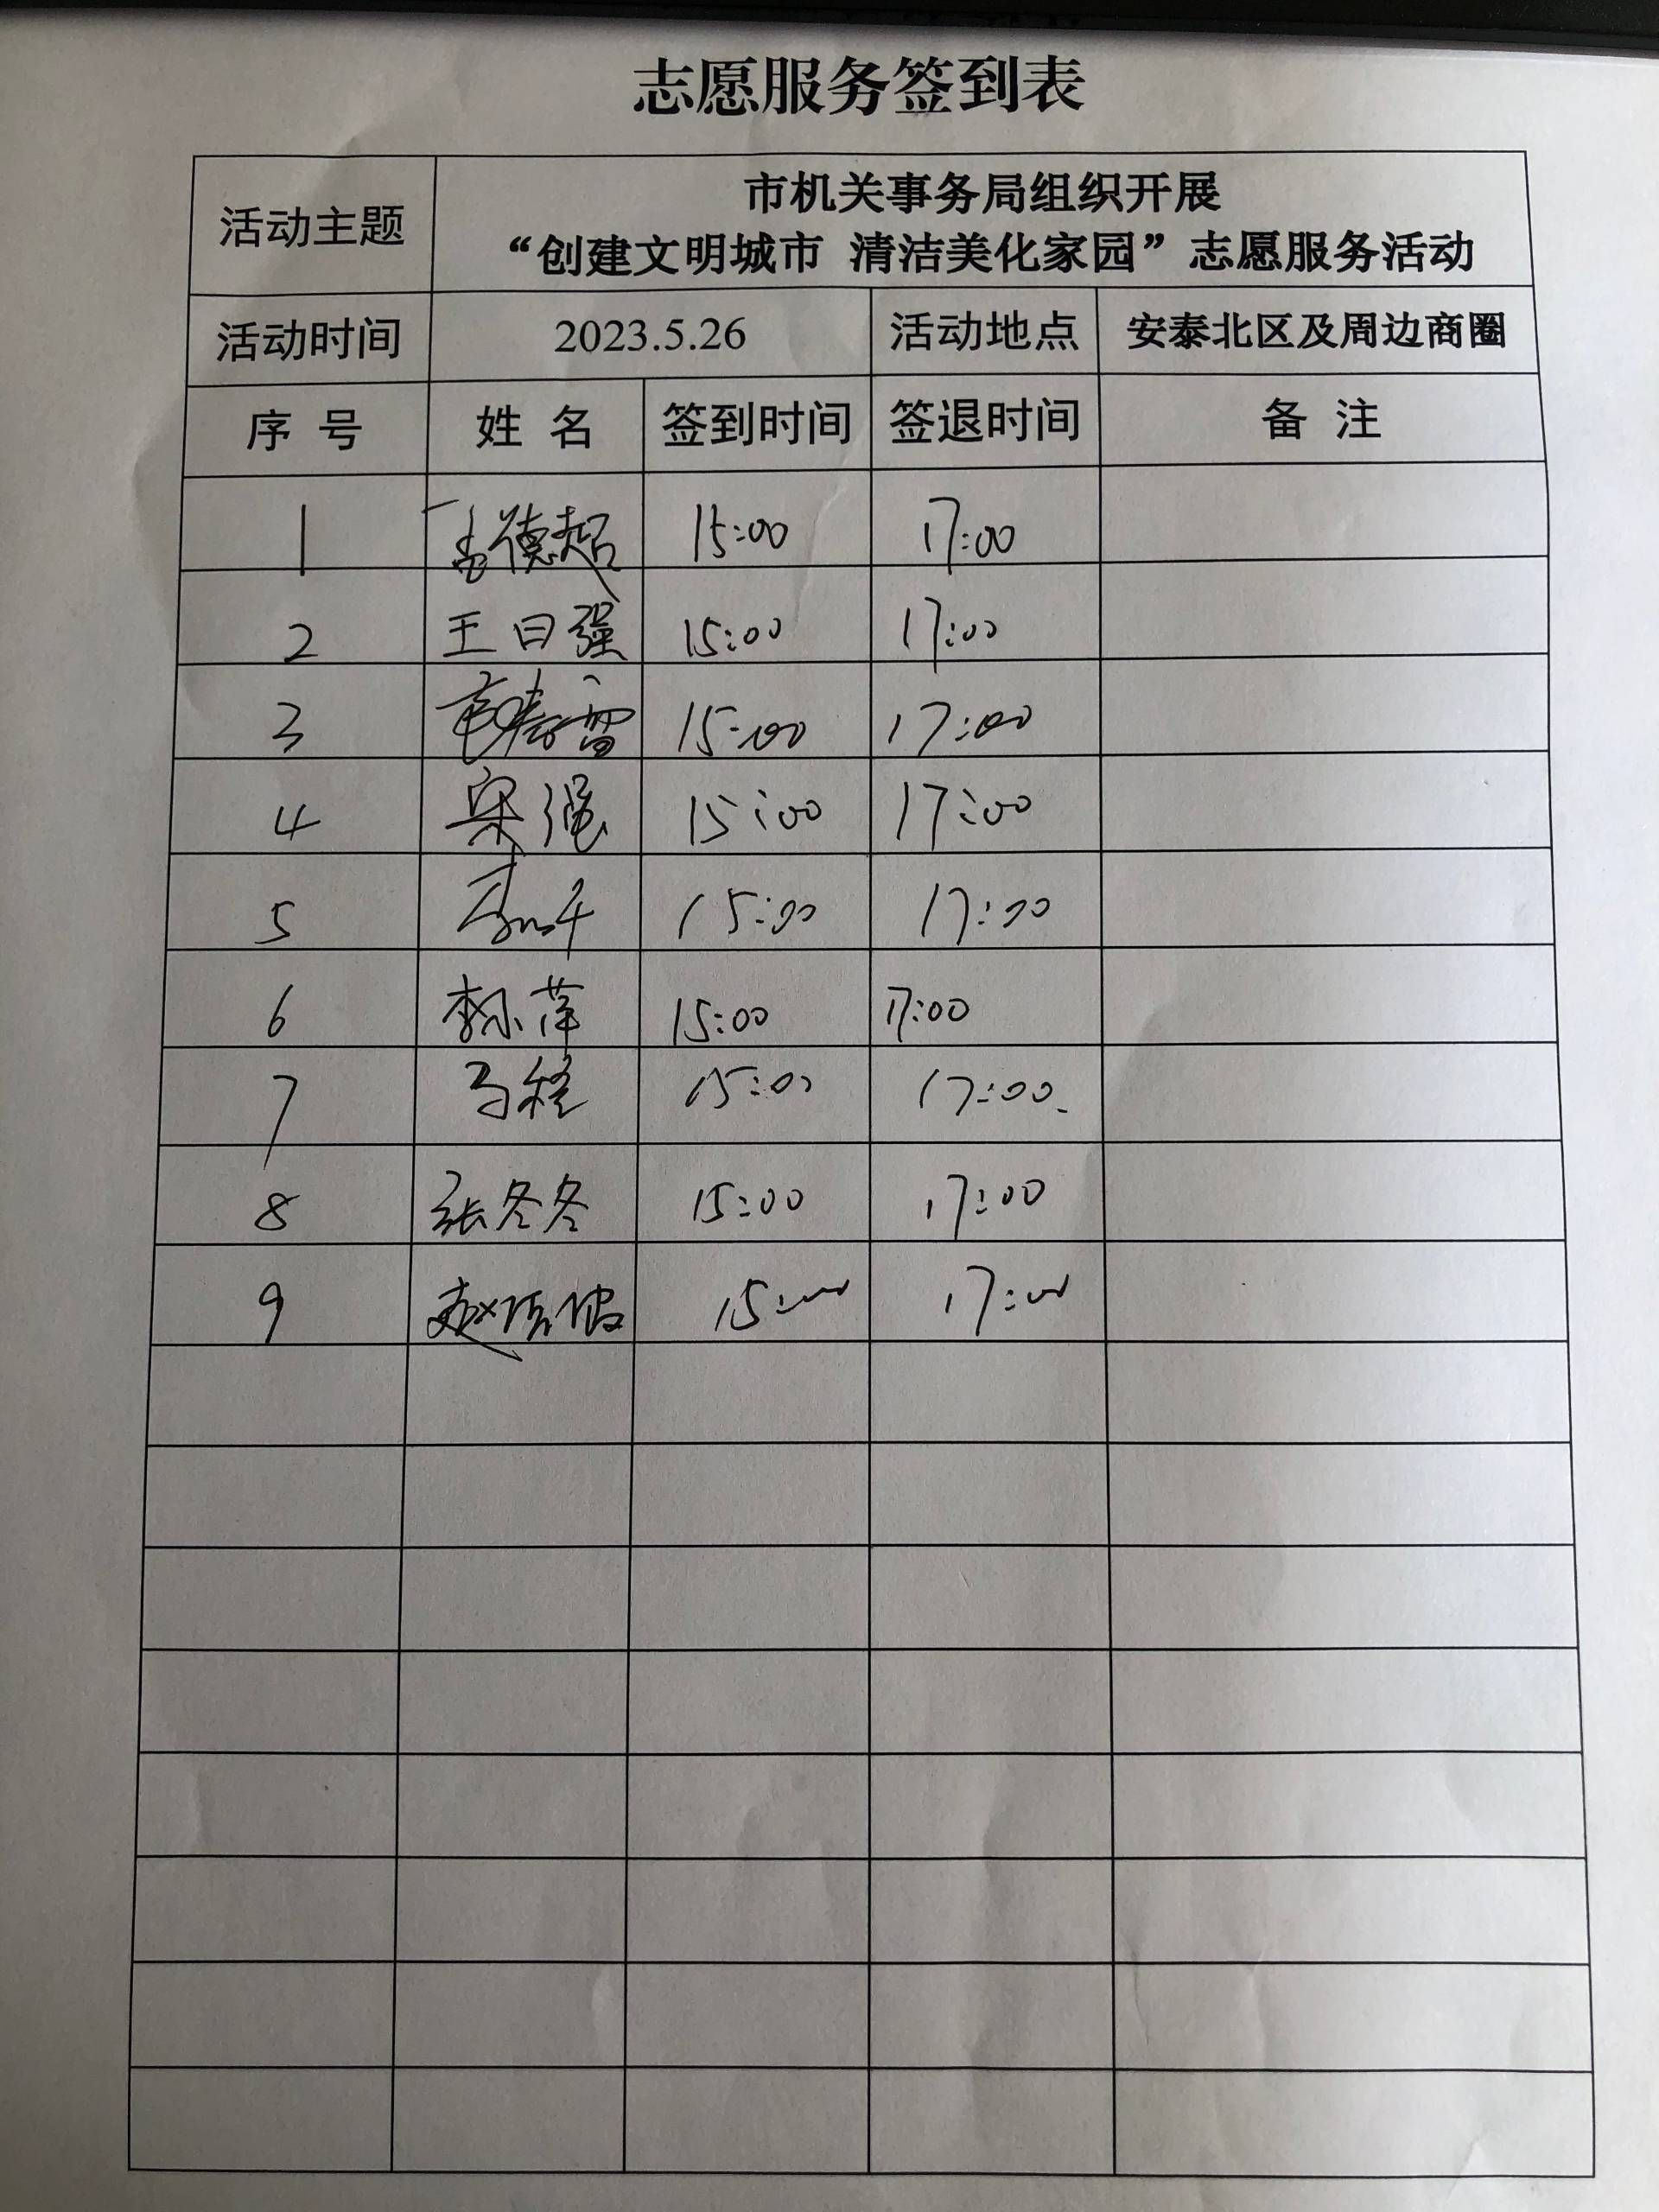 志愿服务签到表
活动主题
市机关事务局组织开展
“创建文明城市 清洁美化家园”志愿服务活动
活动时间 2023.5.26 活动地点 安泰北区及周边商圈
序 号 姓 名 签到时间 签退时间 备 注
1 孟德超 15:00 17:00
2 王曰强 15:00 17:00
3 15:00 17:00
4 宋强 15:00 17:00
5 15:00 17:00
6 15:00 17:00
7 15:00 17:00
8 张冬冬 15:00 17:00
9 15:00 17:00